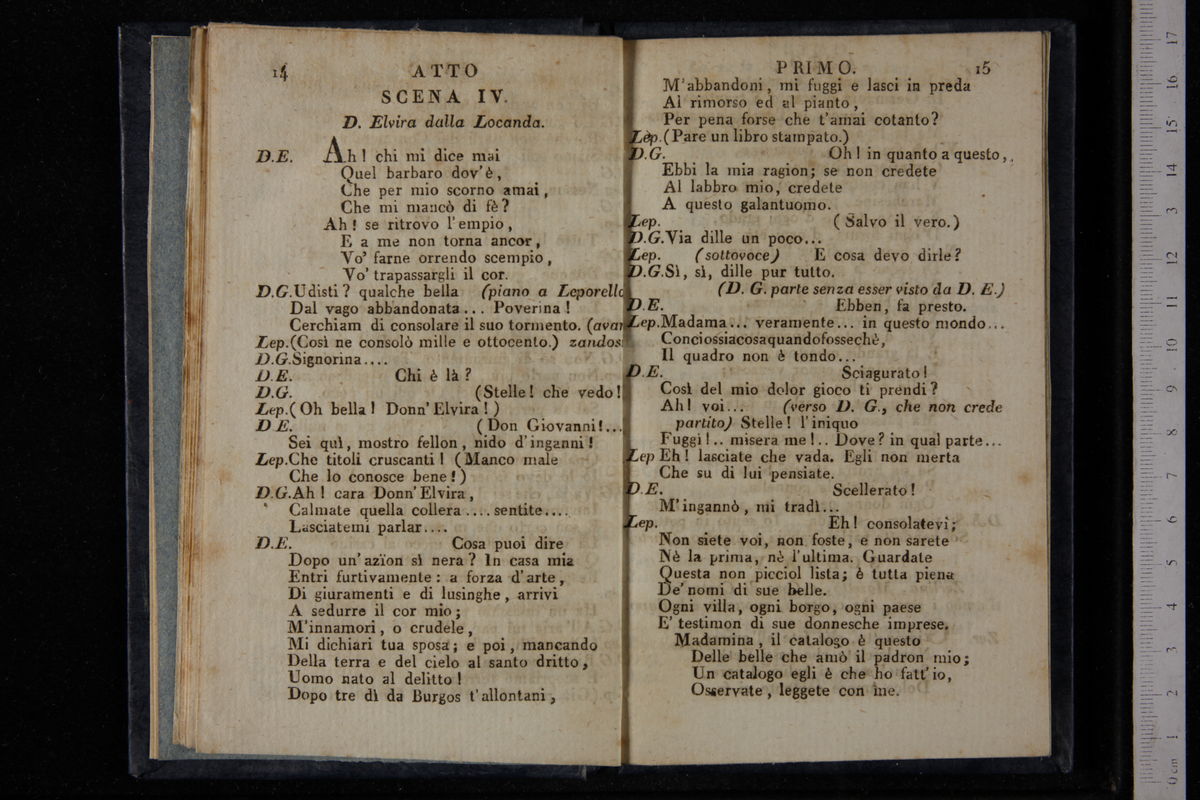 14 ATTO
SCENA IV.
D. Elvira dalla Locanda.
D.E. Ah! chi mi dice mai
Quel barbaro dov'è,
Che per mio scorno amai,
Che mi mancò di fè?
Ah! se ritrovo l'empio,
E a me non torna ancor,
Vo' farne orrendo scempio,
Vo' trapassargli il cor.
D.G. Udisti? qualche bella (piano a Leporello
Dal vago abbandonata... Poverina!
Cerchiam di consolare il suo tormento. (avan
Lep. (Così ne consolò mille e ottocento.) zandosi
D.G. Signorina....
D.E. Chi è là?
D.G. (Stelle! che vedo!
Lep. (Oh bella! Donn'Elvira!)
D E. (Don Giovanni!...
Sei quì, mostro fellon, nido d'inganni!
Lep. Che titoli cruscanti! (Manco male
Che lo conosce bene!)
D.G. Ah! cara Donn'Elvira,
Calmate quella collera.... sentite....
Lasciatemi parlar....
D.E. Cosa puoi dire
Dopo un'azïon sì nera? In casa mia
Entri furtivamente: a forza d'arte,
Di giuramenti e di lusinghe, arrivi
A sedurre il cor mio;
M'innamori, o crudele,
Mi dichiari tua sposa; e poi, mancando
Della terra e del cielo al santo dritto,
Uomo nato al delitto!
Dopo tre dì da Burgos t'allontani,
PRIMO. 15
M'abbandoni, mi fuggi e lasci in preda
Al rimorso ed al pianto,
Per pena forse che t'amai cotanto?
Lep. (Pare un libro stampato.)
D.G. Oh! in quanto a questo,.
Ebbi la mia ragion; se non credete
Al labbro mio, credete
A questo galantuomo.
Lep. (Salvo il vero.)
D.G. Via dille un poco...
Lep. (sottovoce) E cosa devo dirle?
D.G. Sì, sì, dille pur tutto.
(D. G. parte senza esser visto da D. E.)
D.E. Ebben, fa presto.
Lep. Madama... veramente... in questo mondo...
Conciossiacosaquandofossechè,
Il quadro non è tondo...
D.E. Sciagurato!
Così del mio dolor gioco ti prendi?
Ah! voi... (verso D. G., che non crede
partito) Stelle! l'iniquo
Fuggì!.. misera me!.. Dove? in qual parte...
Lep Eh! lasciate che vada. Egli non merta
Che su di lui pensiate.
D.E. Scellerato!
M'ingannò, mi tradì...
Lep. Eh! consolatevi;
Non siete voi, non foste, e non sarete
Nè la prima, nè l'ultima. Guardate
Questa non picciol lista; è tutta piena
De' nomi di sue belle.
Ogni villa, ogni borgo, ogni paese
E' testimon di sue donnesche imprese.
Madamina, il catalogo è questo
Delle belle che amò il padron mio;
Un catalogo egli è che ho fatt'io,
Osservate, leggete con me.
0 cm 1 2 3 4 5 6 7 8 9 10 11 12 13 14 15 16 17